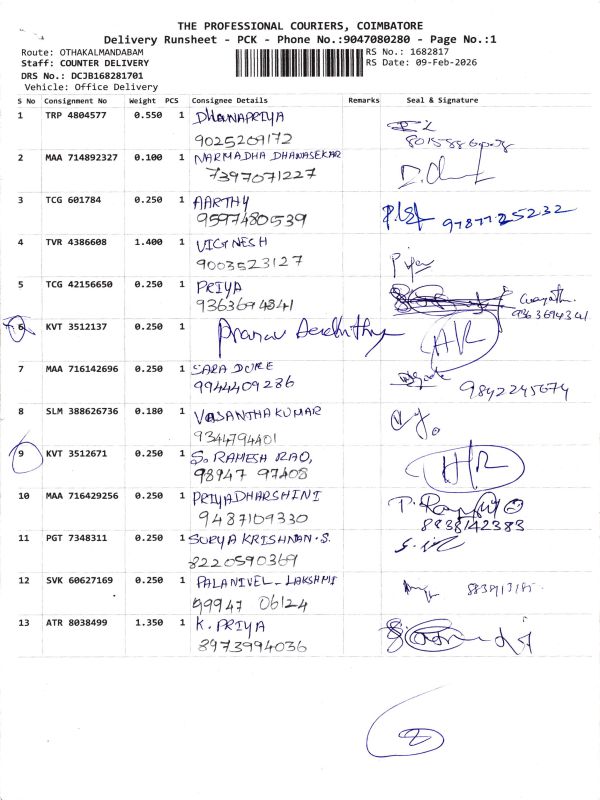 THE PROFESSIONAL COURIERS, COIMBATORE
Delivery Runsheet - PCK - Phone No.:9047080280 - Page No.:1
Route: OTHAKALMANDABAM
RS No.: 1682817
Staff: COUNTER DELIVERY
RS Date: 09-Feb-2026
DRS No.: DCJB168281701
Vehicle: Office Delivery
S No Consignment No Weight PCS Consignee Details Remarks Seal & Signature
1 TRP 4804577 0.550 1 DHANAPRIYA
9025209172
2 MAA 714892327 0.100 1 NARMADHA DHANASEKAR
7397071227
3 TCG 601784 0.250 1 AARTHY
9597480539 9787725232
4 TVR 4386608 1.400 1 VIGNESH
9003523127
5 TCG 42156650 0.250 1 PRIYA
9363694341 9363694341
6 KVT 3512137 0.250 1 Pranav
7 MAA 716142696 0.250 1 SARA DORE
9944409286 9842245674
8 SLM 388626736 0.180 1 VASANTHAKUMAR
9344794401
9 KVT 3512671 0.250 1 S. RAMESH RAO, HR
98947 97408
10 MAA 716429256 0.250 1 PRIYADHARSHINI
9487109330 8838142383
11 PGT 7348311 0.250 1 SURYA KRISHNAN.S.
8220590369
12 SVK 60627169 0.250 1 PALANIVEL - LAKSHMI
99947 06124
13 ATR 8038499 1.350 1 K. PRIYA
8973994036